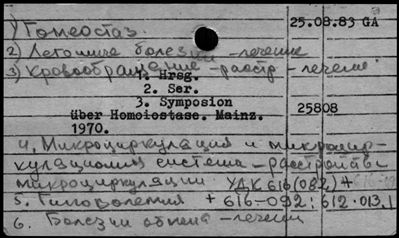 1) Гомеостаз. 25.08.83 GA
2) Легочные болезни - лечение
3) Кровообращение - расстр. - лечение
1. Hrsg.
2. Ser.
3. Symposion 25808
über Homoiostase. Mainz.
1970.
4. Микроциркуляция и микроцир-
куляционная система - расстройства
микроциркуляции. УДК 616(082) +
5. Гиповолемия + 616-092:612.013.1
6. Болезни обмена - лечение